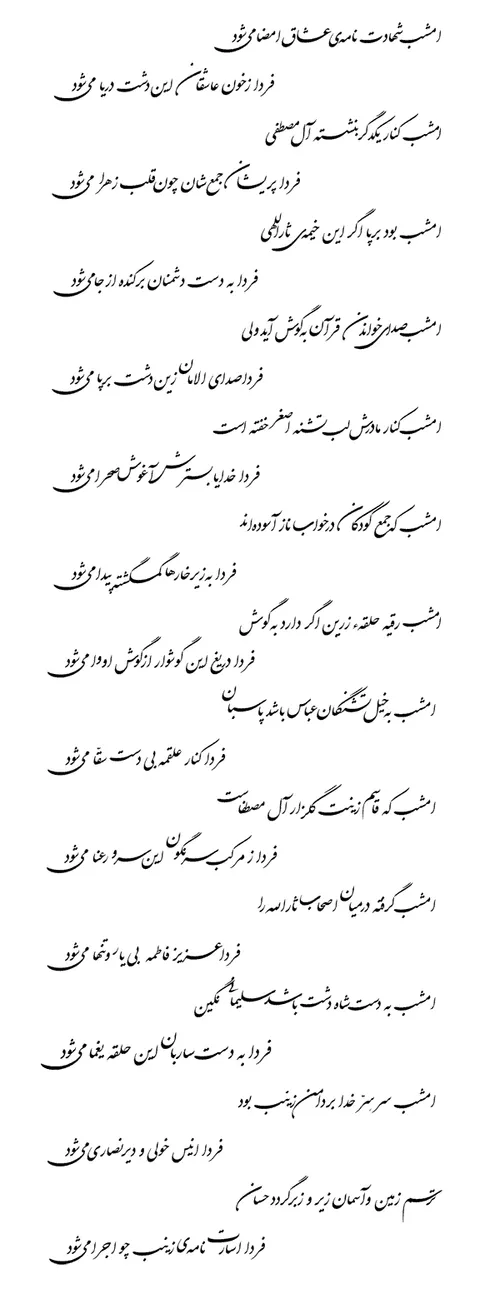 امشب شهادت نامه‌ی عشاق امضا می‌شود
فردا ز خون عاشقان این دشت دریا می‌شود
امشب کنار یکدگر بنشسته آل مصطفی
فردا پریشان جمع‌شان چون قلب زهرا می‌شود
امشب بود برپا اگر این خیمه‌ی ثاراللهی
فردا به دست دشمنان برکنده از جا می‌شود
امشب صدای خواندن قرآن به گوش آید ولی
فردا صدای الامان زین دشت برپا می‌شود
امشب کنار مادرش لب تشنه اصغر خفته است
فردا خدایا بسترش آغوش صحرا می‌شود
امشب که جمع کودکان در خواب ناز آسوده‌اند
فردا به زیر خارها گمگشته پیدا می‌شود
امشب رقیه حلقهء زرین اگر دارد به گوش
فردا دریغ این گوشوار از گوش او وا می‌شود
امشب به خیل تشنگان عباس باشد پاسبان
فردا کنار علقمه بی دست سقّا می‌شود
امشب که قاسم زینت گلزار آل مصطفاست
فردا ز مرکب سرنگون این سرو رعنا می‌شود
امشب گرفته در میان اصحاب ثارالله را
فردا عزیز فاطمه بی یار و تنها می‌شود
امشب به دست شاه دشت باشد سلیمانی نگین
فردا به دست ساربان این حلقه یغما می‌شود
امشب سر سِرّ خدا بر دامن زینب بود
فردا انیس خولی و دیر نصاری می‌شود
ترسم زمین و آسمان زیر و زبر گردد حسان
فردا اسارت نامه‌ی زینب چو اجرا می‌شود